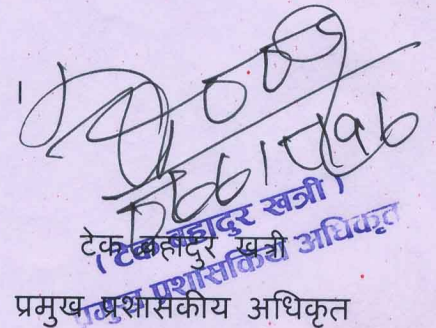 (टेक बहादुर खत्री)
प्रमुख प्रशासकीय अधिकृत
टेक बहादुर खत्री
प्रमुख प्रशासकीय अधिकृत